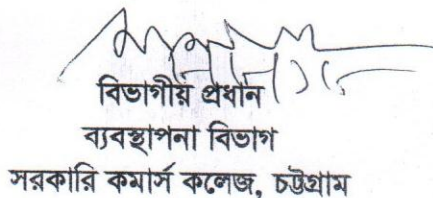 বিভাগীয় প্রধান
ব্যবস্থাপনা বিভাগ
সরকারি কমার্স কলেজ, চট্টগ্রাম